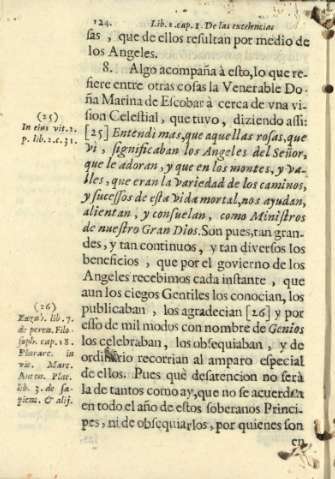 124. Lib. 2. cap. 2. De las excelencias
sas, que de ellos resultan por medio de
los Angeles.
8. Algo acompaña à esto, lo que re-
fiere entre otras cosas la Venerable Do-
ña Marina de Escobar à cerca de vna vi-
sion Celestial, que tuvo, diziendo assi:
(25)
In eius vit. 2.
p. lib. 2. c. 31.
[25] Entendi mas, que aquellas rosas, que
vi, significaban los Angeles del Señor,
que le adoran, y que en los montes, y va-
lles, que eran la variedad de los caminos,
y sucessos de esta vida mortal, nos ayudan,
alientan, y consuelan, como Ministros
de nuestro Gran Dios. Son pues, tan gran-
des, y tan continuos, y tan diversos los
beneficios, que por el govierno de los
Angeles recebimos cada instante, que
aun los ciegos Gentiles los conocian, los
publicaban, los agradecian [26] y por
esso de mil modos con nombre de Genios
los celebraban, los obsequiaban, y de
ordinario recorrian al amparo especial
de ellos. Pues què desatencion no serà
la de tantos como ay, que no se acuerden
en todo el año de estos soberanos Princi-
pes, ni de obsequiarlos, por quienes son
en
(26)
lib. 7.
de peren. Filo-
soph. cap. 18.
Plutarc. in
vit. Marc.
Anton. Plat.
lib. 3. de sa-
pient. & alij.